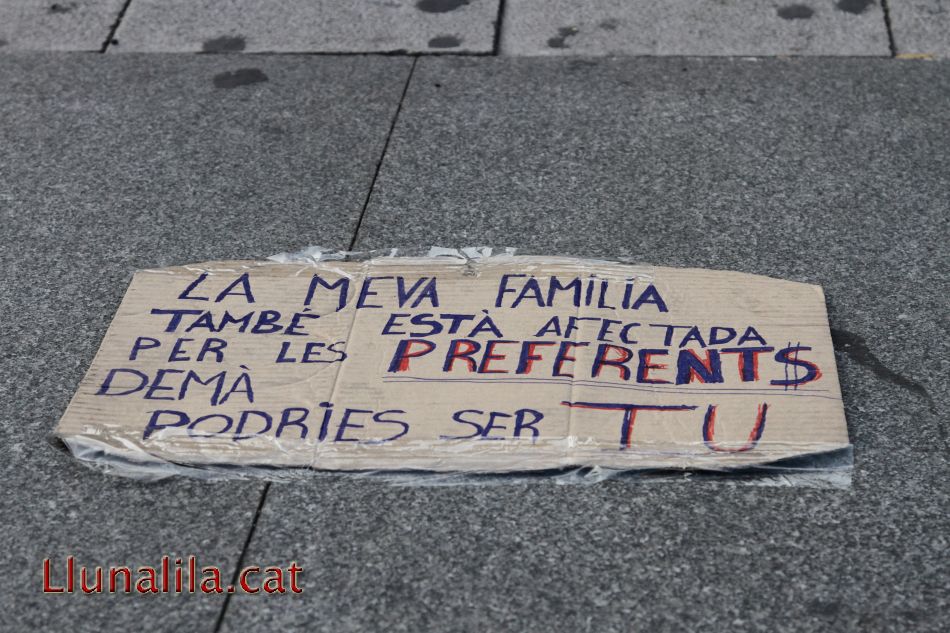 LA MEVA FAMÍLIA
TAMBÉ ESTÀ AFECTADA
PER LES PREFERENT$
DEMÀ
PODRÍES SER TU
Llunalila.cat